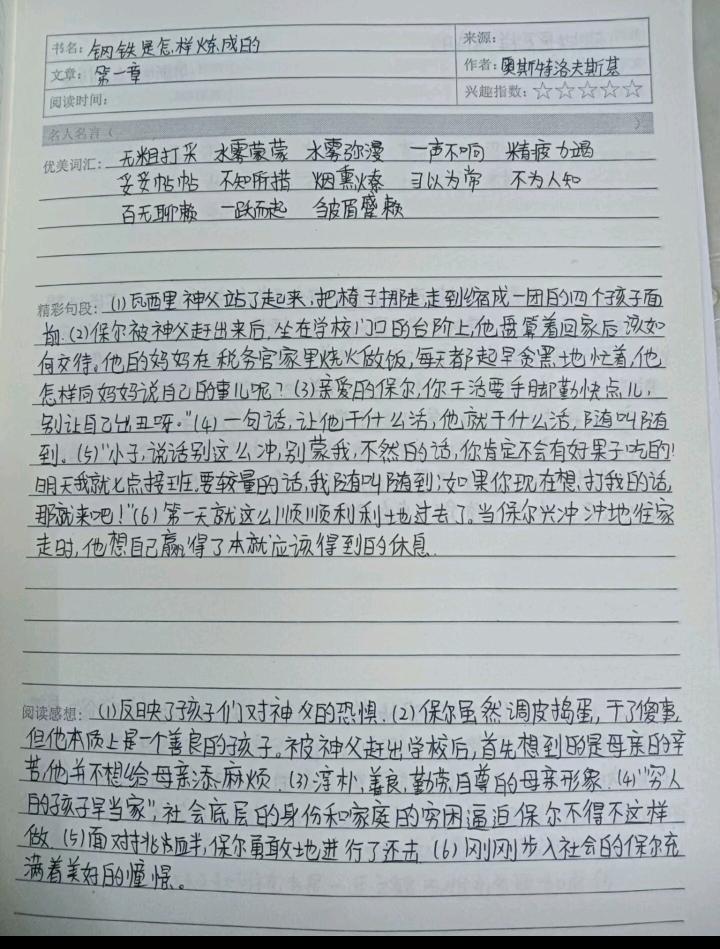 书名：钢铁是怎样炼成的
来源：
文章：第一章
作者：奥斯特洛夫斯基
阅读时间：
兴趣指数：☆☆☆☆☆
名人名言（ ）
优美词汇：无粗打采 水雾蒙蒙 水雾弥漫 一声不响 精疲力竭
妥妥帖帖 不知所措 烟熏火燎 习以为常 不为人知
百无聊赖 一跃而起 皱眉蹙额
精彩句段：(1)瓦西里神父站了起来，把椅子挪走，走到缩成一团的四个孩子面
前.(2)保尔被神父赶出来后，坐在学校门口的台阶上，他盘算着回家后该如
何交待。他的妈妈在税务官家里烧火做饭，每天都起早贪黑地忙着，他
怎样向妈妈说自己的事儿呢？(3)亲爱的保尔，你干活要手脚勤快点儿，
别让自己出丑呀。”(4)一句话，让他干什么活，他就干什么活，随叫随
到。(5)“小子，说话别这么冲，别蒙我，不然的话，你肯定不会有好果子吃的！
明天我就七点接班，要较量的话，我随叫随到；如果你现在想打我的话，
那就来吧！”(6)第一天就这么顺顺利利地过去了。当保尔兴冲冲地往家
走时，他想自己赢得了本就应该得到的休息.
阅读感想：(1)反映了孩子们对神父的恐惧.(2)保尔虽然调皮捣蛋，干了傻事，
但他本质上是一个善良的孩子。被神父赶出学校后，首先想到的是母亲的辛
苦，他并不想给母亲添麻烦.(3)淳朴，善良，勤劳，自尊的母亲形象.(4)“穷人
的孩子早当家”，社会底层的身份和家庭的穷困逼迫保尔不得不这样
做.(5)面对挑衅，保尔勇敢地进行了还击.(6)刚刚步入社会的保尔充
满着美好的憧憬。